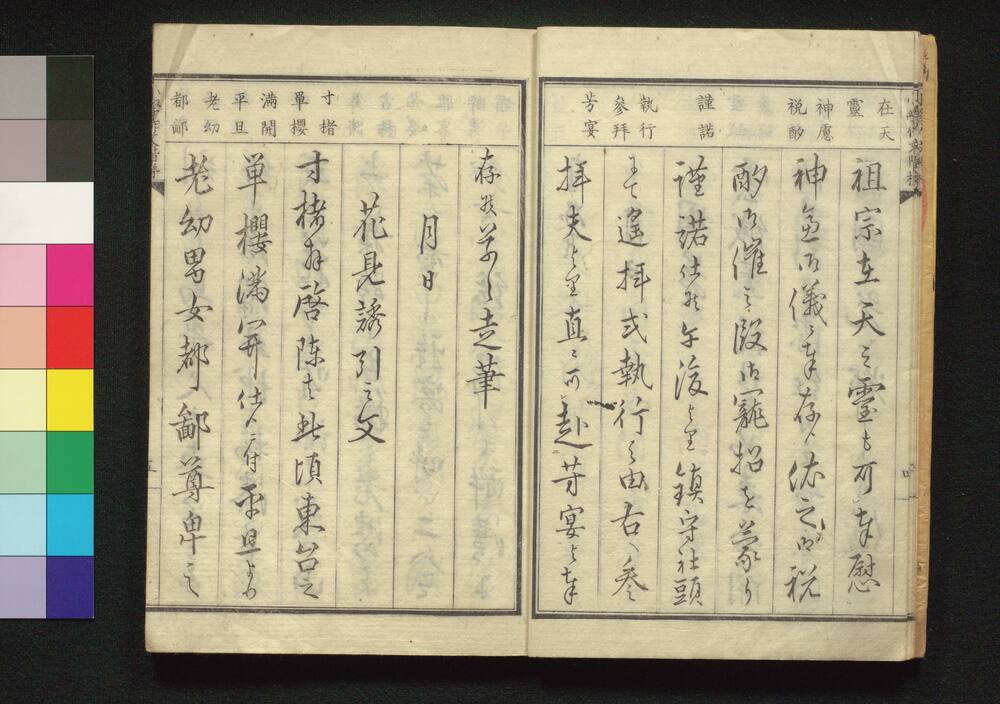 在天
靈
神慮
税酌
謹諾
執行
參拜
芳宴
祖宗在天之靈も可奉慰
神慮御儀と奉存候依之御税
酌御催之段御寵招を蒙り
謹諾仕候午後より鎮守社頭
にて遙拝式執行之由右へ参
拝夫より直に可赴芳宴と奉
寸楮
單櫻
滿開
平旦
老幼
都鄙
存候草々走筆
月日
花見誘引之文
寸楮拜啓陳者此頃東台之
単櫻滿開仕候ニ付平旦より
老幼男女都鄙尊卑之